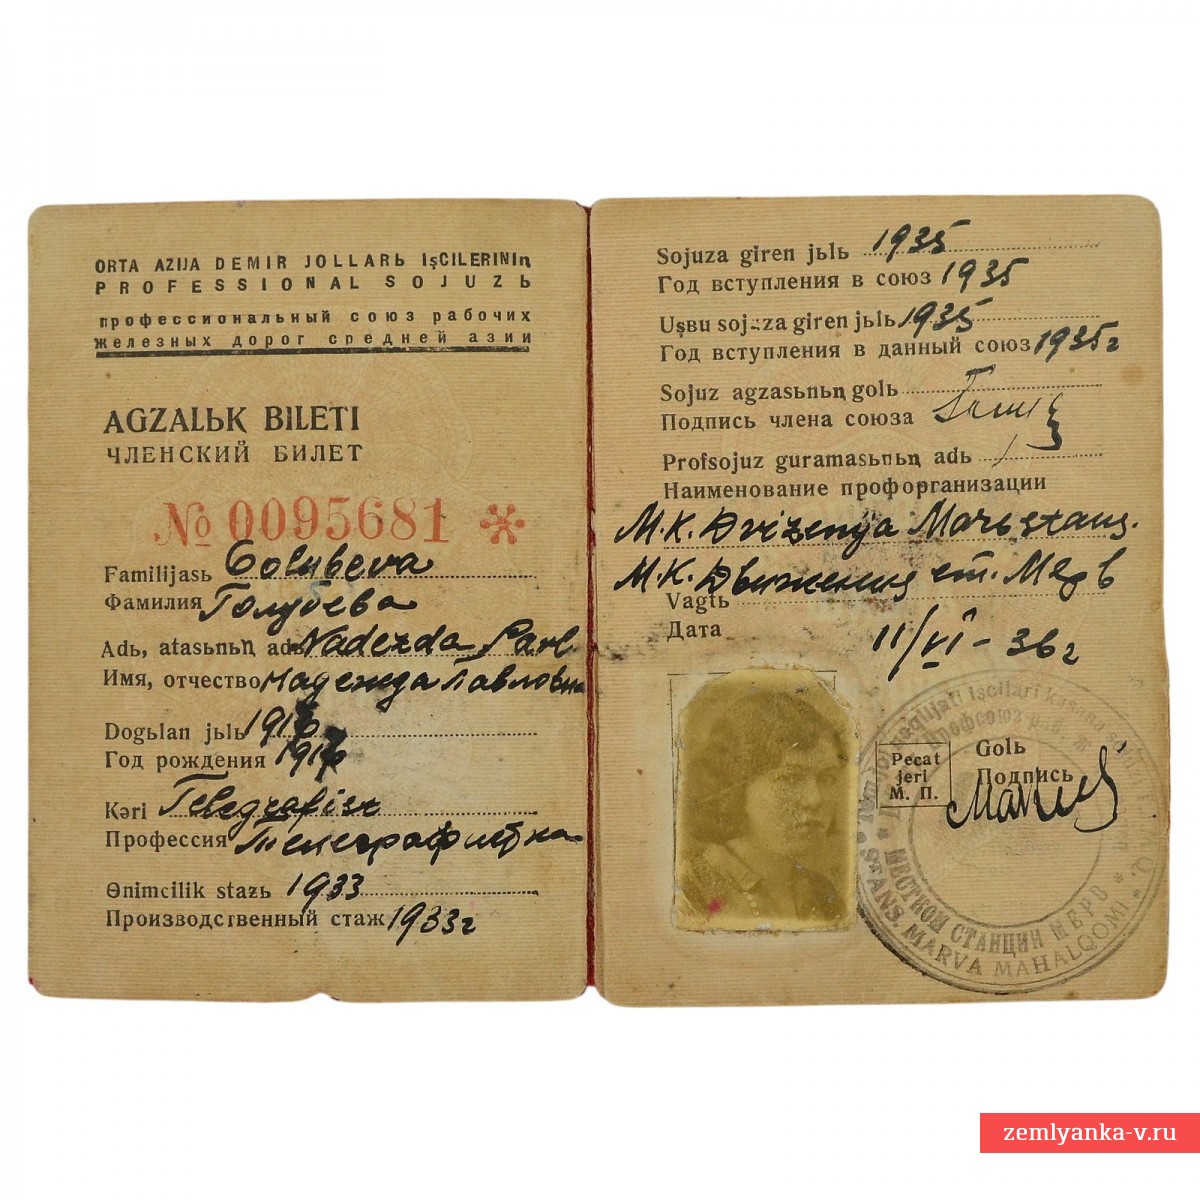 ORTA AZIJA DEMIR JOLLARЬ IşCILERININ
PROFESSIONAL SOJUZЬ
профессиональный союз рабочих
железных дорог средней азии
AGZALЬK BILETI
ЧЛЕНСКИЙ БИЛЕТ
№ 0095681
Familijasь Golubeva
Фамилия Голубева
Adь, atasьnьꞑ adь Nadezda Pavl
Имя, отчество Надежда Павловна
Dogьlan jьlь 1916
Год рождения 1916
Kəri Telegrafist
Профессия Телеграфистка
Ɵnimcilik stazь 1933
Производственный стаж 1933г
Sojuza giren jьlь 1935
Год вступления в союз 1935
Uşвu sojuza giren jьlь 1935
Год вступления в данный союз 1935г
Sojuz agzasьnьꞑ golь
Подпись члена союза
Profsojuz guramasьnьꞑ adь
Наименование профорганизации
M.K. Dvizenija Marь stans.
М.К. Движения ст. Мерв
Vagtь
Дата
11/VI-36г
Pecat
jeri
М. П.
Golь
Подпись
МЕСТКОМ СТАНЦИИ МЕРВ
STANS. MARVA MAHALQOMI
zemlyanka-v.ru